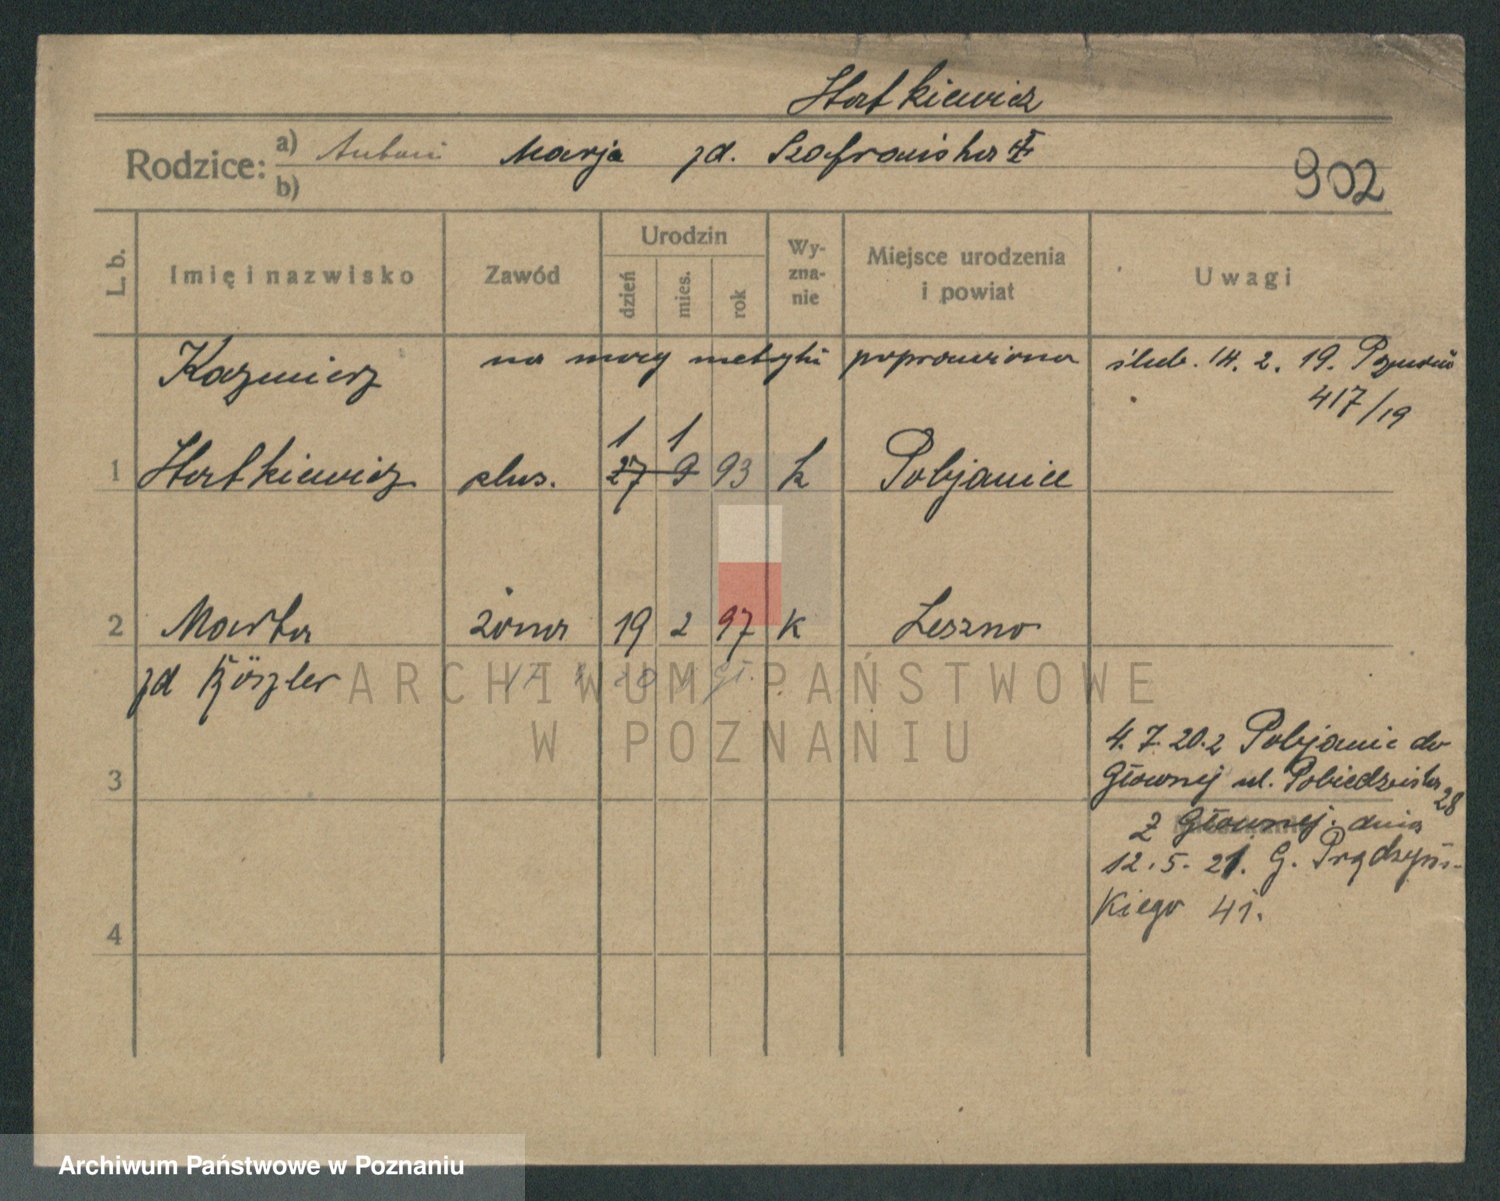 Hatkiewicz
Rodzice: a) Antoni Marja zd. Szafrańska
b)
902
L. b. Imię i nazwisko Zawód Urodzin dzień mies. rok Wy-zna-nie Miejsce urodzenia i powiat Uwagi
Kazmierz na mocy metryki poprawiona ślub. 14. 2. 19. Poznań
417/19
1 1
1 Hatkiewicz plus. 27 9 93 k Pobjanice
2 Marta żona 19 2 97 k Leszno
zd Köszler
ARCHIWUM PAŃSTWOWE
W POZNANIU
4. 7. 20. z Pobjanic do
3 Głównej ul. Pobiedziska 28
z Głównej. dnia
12. 5. 21. G. Prądzyń-
kiego 41.
4
Archiwum Państwowe w Poznaniu